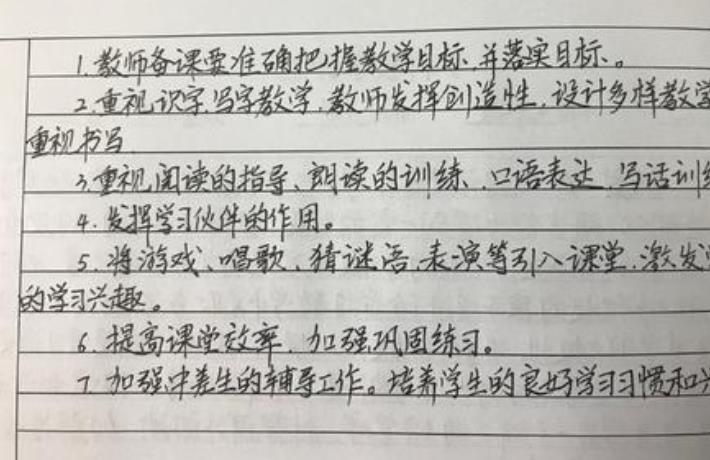 1. 教师备课要准确把握教学目标,并落实目标。
2. 重视识字,写字教学,教师发挥创造性,设计多样教学
重视书写
3. 重视阅读的指导、朗读的训练、口语表达,写话训练
4. 发挥学习伙伴的作用。
5. 将游戏、唱歌、猜谜语,表演等引入课堂,激发
的学习兴趣。
6. 提高课堂效率,加强巩固练习。
7. 加强中差生的辅导工作。培养学生的良好学习习惯和